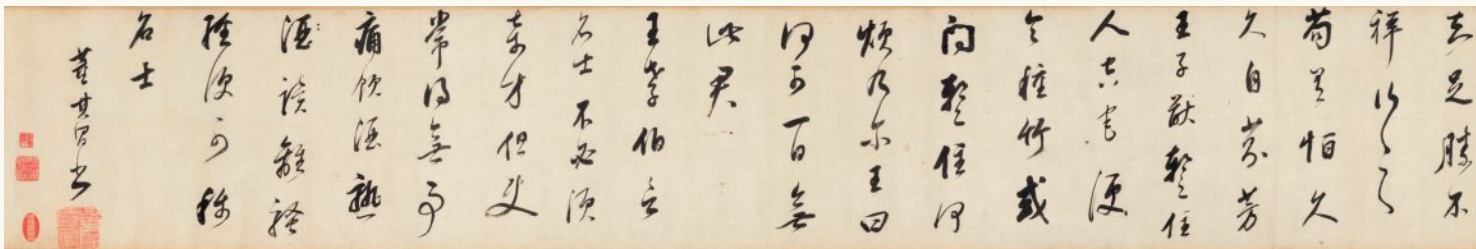 知足勝不
祥行之
苟有恒久
久自芬芳
王子猷暫住
人空宅便
令種竹或
問暫住何
煩乃尔王曰
何可一日無
此君
王孝伯言
名士不必須
奇才但使
常得無事
痛飲酒熟
酒讀離騷
經便可稱
名士
董其昌書